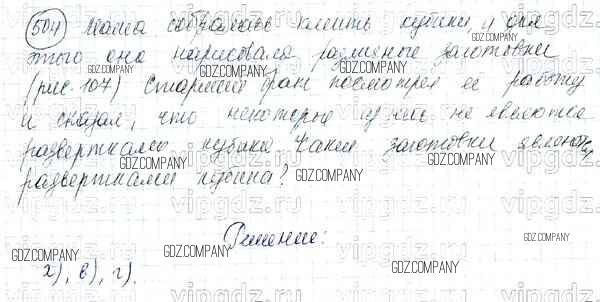 504 Маша собралась клеить кубики и для
этого она нарисовала различные заготовки
(рис. 107) Старший брат посмотрел ее работу
и сказал, что некоторые из них не являются
развертками кубика Какие заготовки являются
развертками кубика?
Решение:
а), в), г).
GDZ.COMPANY
vipgdz.ru